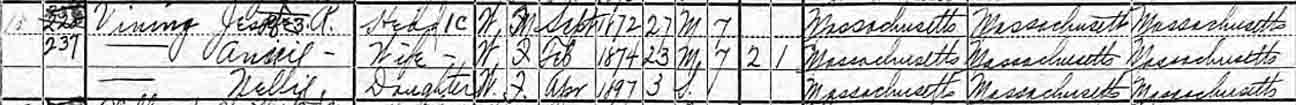 Vining R. Head 1C W. M Sept 1872 27 M 7 Massachusetts Massachusetts Massachusetts
237 — Annie — Wife — W. F Feb 1874 23 M 7 2 1 Massachusetts Massachusetts Massachusetts
— Nellie, Daughter W. F. Apr 1897 3 S. Massachusetts Massachusetts Massachusetts